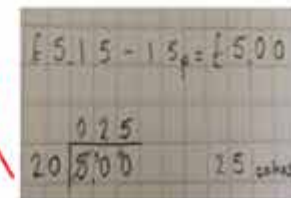 £5.15 - 15p = £5.00
025
20 500 25 cakes